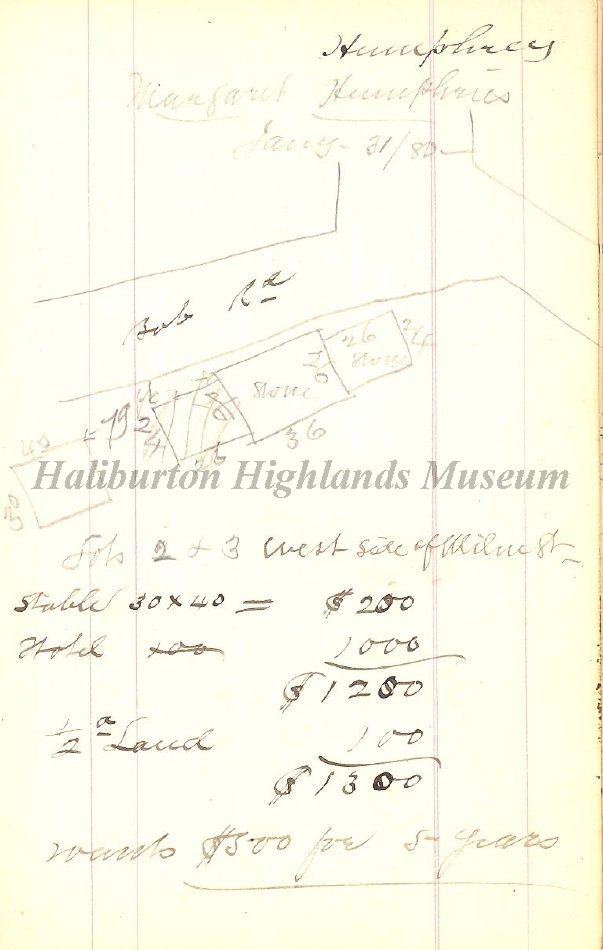 Humphrey
Margaret Humphries
Jany - 31/80 -
Bob Rd
26 24
Stone
26
Stone
36
26
26
24
79
40
30
Haliburton Highlands Museum
Lots 2 & 3 West Side of Milne St -
Stable 30x40 = $200
Hotel 1000
$1200
1/2 a Land 100
$1300
wants $500 for 5 years